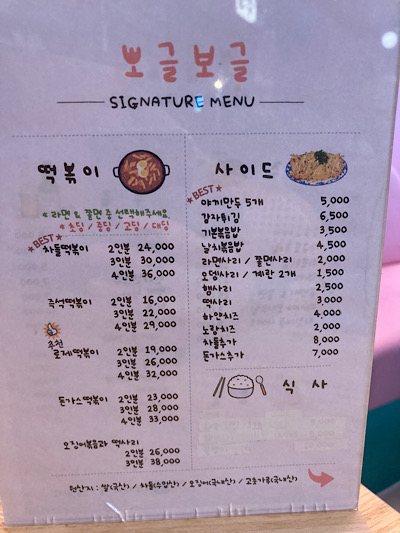 뽀글보글
SIGNATURE MENU
떡볶이
* 라면 & 쫄면 중 선택해주세요.
* 초딩 / 중딩 / 고딩 / 대딩
*BEST*
차돌떡볶이 2인분 24,000
3인분 30,000
4인분 36,000
즉석떡볶이 2인분 16,000
3인분 22,000
4인분 29,000
추천
로제떡볶이 2인분 19,000
3인분 26,000
4인분 32,000
돈가스떡볶이 2인분 23,000
3인분 28,000
4인분 33,000
오징어볶음과 떡사리
2인분 26,000
3인분 38,000
사이드
*BEST*
야끼만두 5개 5,000
감자튀김 6,500
기본볶음밥 3,500
날치볶음밥 4,500
라면사리 / 쫄면사리 2,000
오뎅사리 / 계란 2개 1,500
햄사리 2,500
떡사리 3,000
하얀치즈 4,000
노랑치즈 2,000
차돌추가 8,000
돈가스추가 7,000
식사
원산지 : 쌀(국산) / 차돌(수입산) / 오징어(국내산) / 고춧가루(국내산)